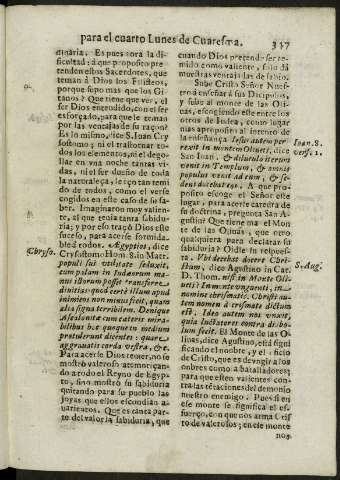 para el cuarto Lunes de Cuaresma. 317
dinaria. Es pues aora la di-
ficultad: à que proposito pre-
tenden estos Sacerdotes, que
teman à Dios los Filisteos,
porque supo mas que los Gi-
tanos? Que tiene que ver, el
ser Dios entendido, con el ser
esforzado, para que le teman
por las ventajas de su raçon?
Es lo mismo, dice S. Iuan Cry
sostomo; ni el trastornar to-
dos los elementos, ni el dego-
llar en vna noche tantas vi-
das, ni el ser dueño de toda
la naturaleça, le hço tan temi
do de todos, como el verse
cogidos en este caso de su sa-
ber. Imaginaron muy valien-
te, al que tenia tanta sabidu-
ria; y por eso traçò Dios esto
suceso, para acerse formida-
ble à todos. Ægyptios, dice
Chryso. Crysostomo Hom. 8. in Matt.
populi sui vestiste soluit,
cum palam in Iudæorum ma-
nus istorum posset transferre
diuitias: quod certè illum apud
inimicos non minus fecit, quam
alia signa terribilem. Denique
Ascalonitæ cum cæteris mira-
bilibus hoc quoque in medium
protulerunt dicentes: quare
aggrauatis corda vestra, &c.
Para acerse Dios temer, no se
mostrò valeroso atemoriçan-
do à todo el Reyno de Egyp-
to, sino mostrò su sabiduria
quitando para su pueblo las
joyas que ellos escondian a-
uarientos. Que es tanta par-
te del valor la sabiduria, que
cuando Dios pretende ser te-
mido como valiente, solo dà
muestras ventajadas de sabio.
Sube Cristo Señor Nues-
tro à enseñar à sus Dicipulos,
y sube al monte de las Oli-
uas, escogiendo este entre los
otros de Iudea, como lugar
mas apropósito al intento de
la enseñança. Iesus autem per-
Ioan. 8. rexit in montem Oliueti, dice
vers. 1. San Iuan, & diluculo iterum
venit in Templum, & omnis
populus venit ad eum, & se-
dens docebat eos. A que pro-
posito escoge el Señor este
lugar, para acerle catedra de
su doctrina, pregunta San A-
gustin? Que tiene mas el Mon
te de las Oliuas, que otro
qualquiera para declarar su
sabiduria? Oidle la respues-
ta. Vbi decebat docere Chri-
S. Aug. stum, dice Agustino en Cat.
D. Thom. nisi in Monte Oli-
ueti: In monte vnguenti, in
nomine chrismatis. Christi au-
tem nomen à crismate dictum
est. Ideo autem nos vnxit,
quia luctatores contra diabo-
lum fecit. El Monte de las O-
liuas, dice Agustino, està signi
ficando el nonbre, y el oficio
de Cristo, que es de vngir à los
onbres como à batalladores;
para que esten valientes con-
tra las tentaciones del demonio
nuestro enemigo. Pues si en
ese monte se significa el es-
fuerço, con que nos arma Cris
to de valerosos; en ese monte
nos